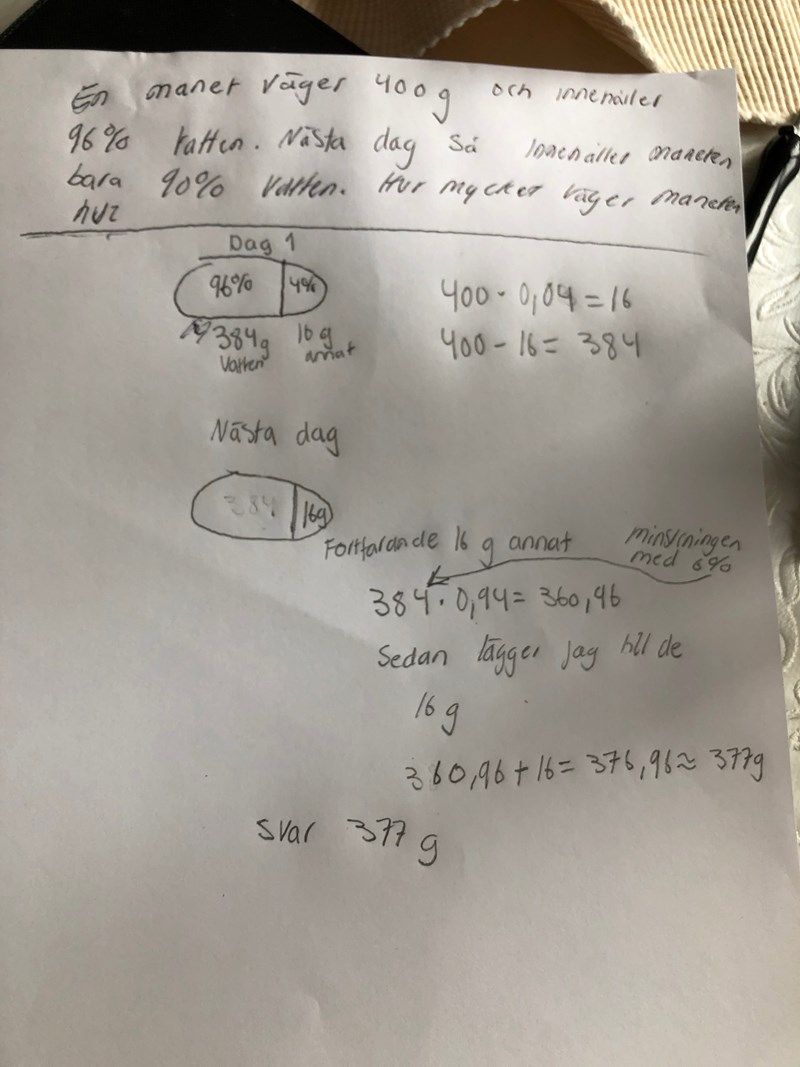 En manet väger 400g och innehåller
96% vatten. Nästa dag så innehåller maneten
bara 90% vatten. Hur mycket väger maneten
nu?
Dag 1
96% 4%
384g 16 g
vatten annat
400 · 0,04 = 16
400 - 16 = 384
Nästa dag
384 16g
Fortfarande 16 g annat
minskningen
med 6%
384 · 0,94 = 360,96
Sedan lägger jag till de
16 g
360,96 + 16 = 376,96 ≈ 377g
svar 377 g